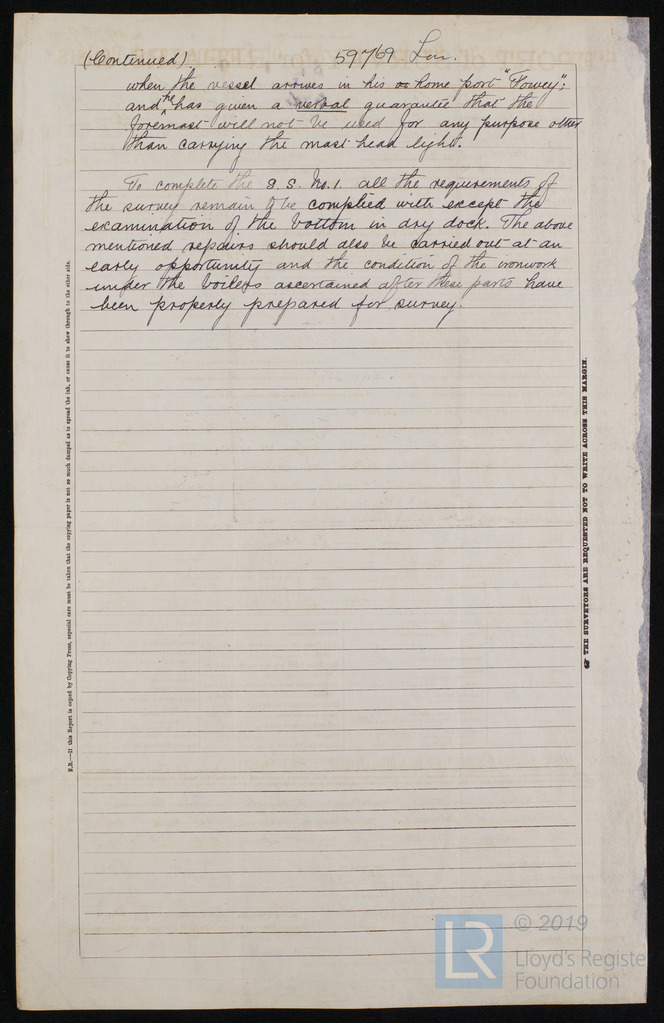 (Continued) 59769 Lon.
when the vessel arrives in his or home port "Fowey";
and he has given a verbal guarantee that the
foremast will not be used for any purpose other
than carrying the mast head light.
To complete the S.S. No. 1. all the requirements of
the survey remain to be complied with except the
examination of the bottom in dry dock. The above
mentioned repairs should also be carried out at an
early opportunity and the condition of the ironwork
under the boilers ascertained after these parts have
been properly prepared for survey.
N.B.—If this Report is copied by Copying Press, especial care must be taken that the copying paper is not so much damped as to spread the ink, or cause it to show through to the other side.
☞ THE SURVEYORS ARE REQUESTED NOT TO WRITE ACROSS THIS MARGIN.
LR
© 2019
Lloyd's Register
Foundation